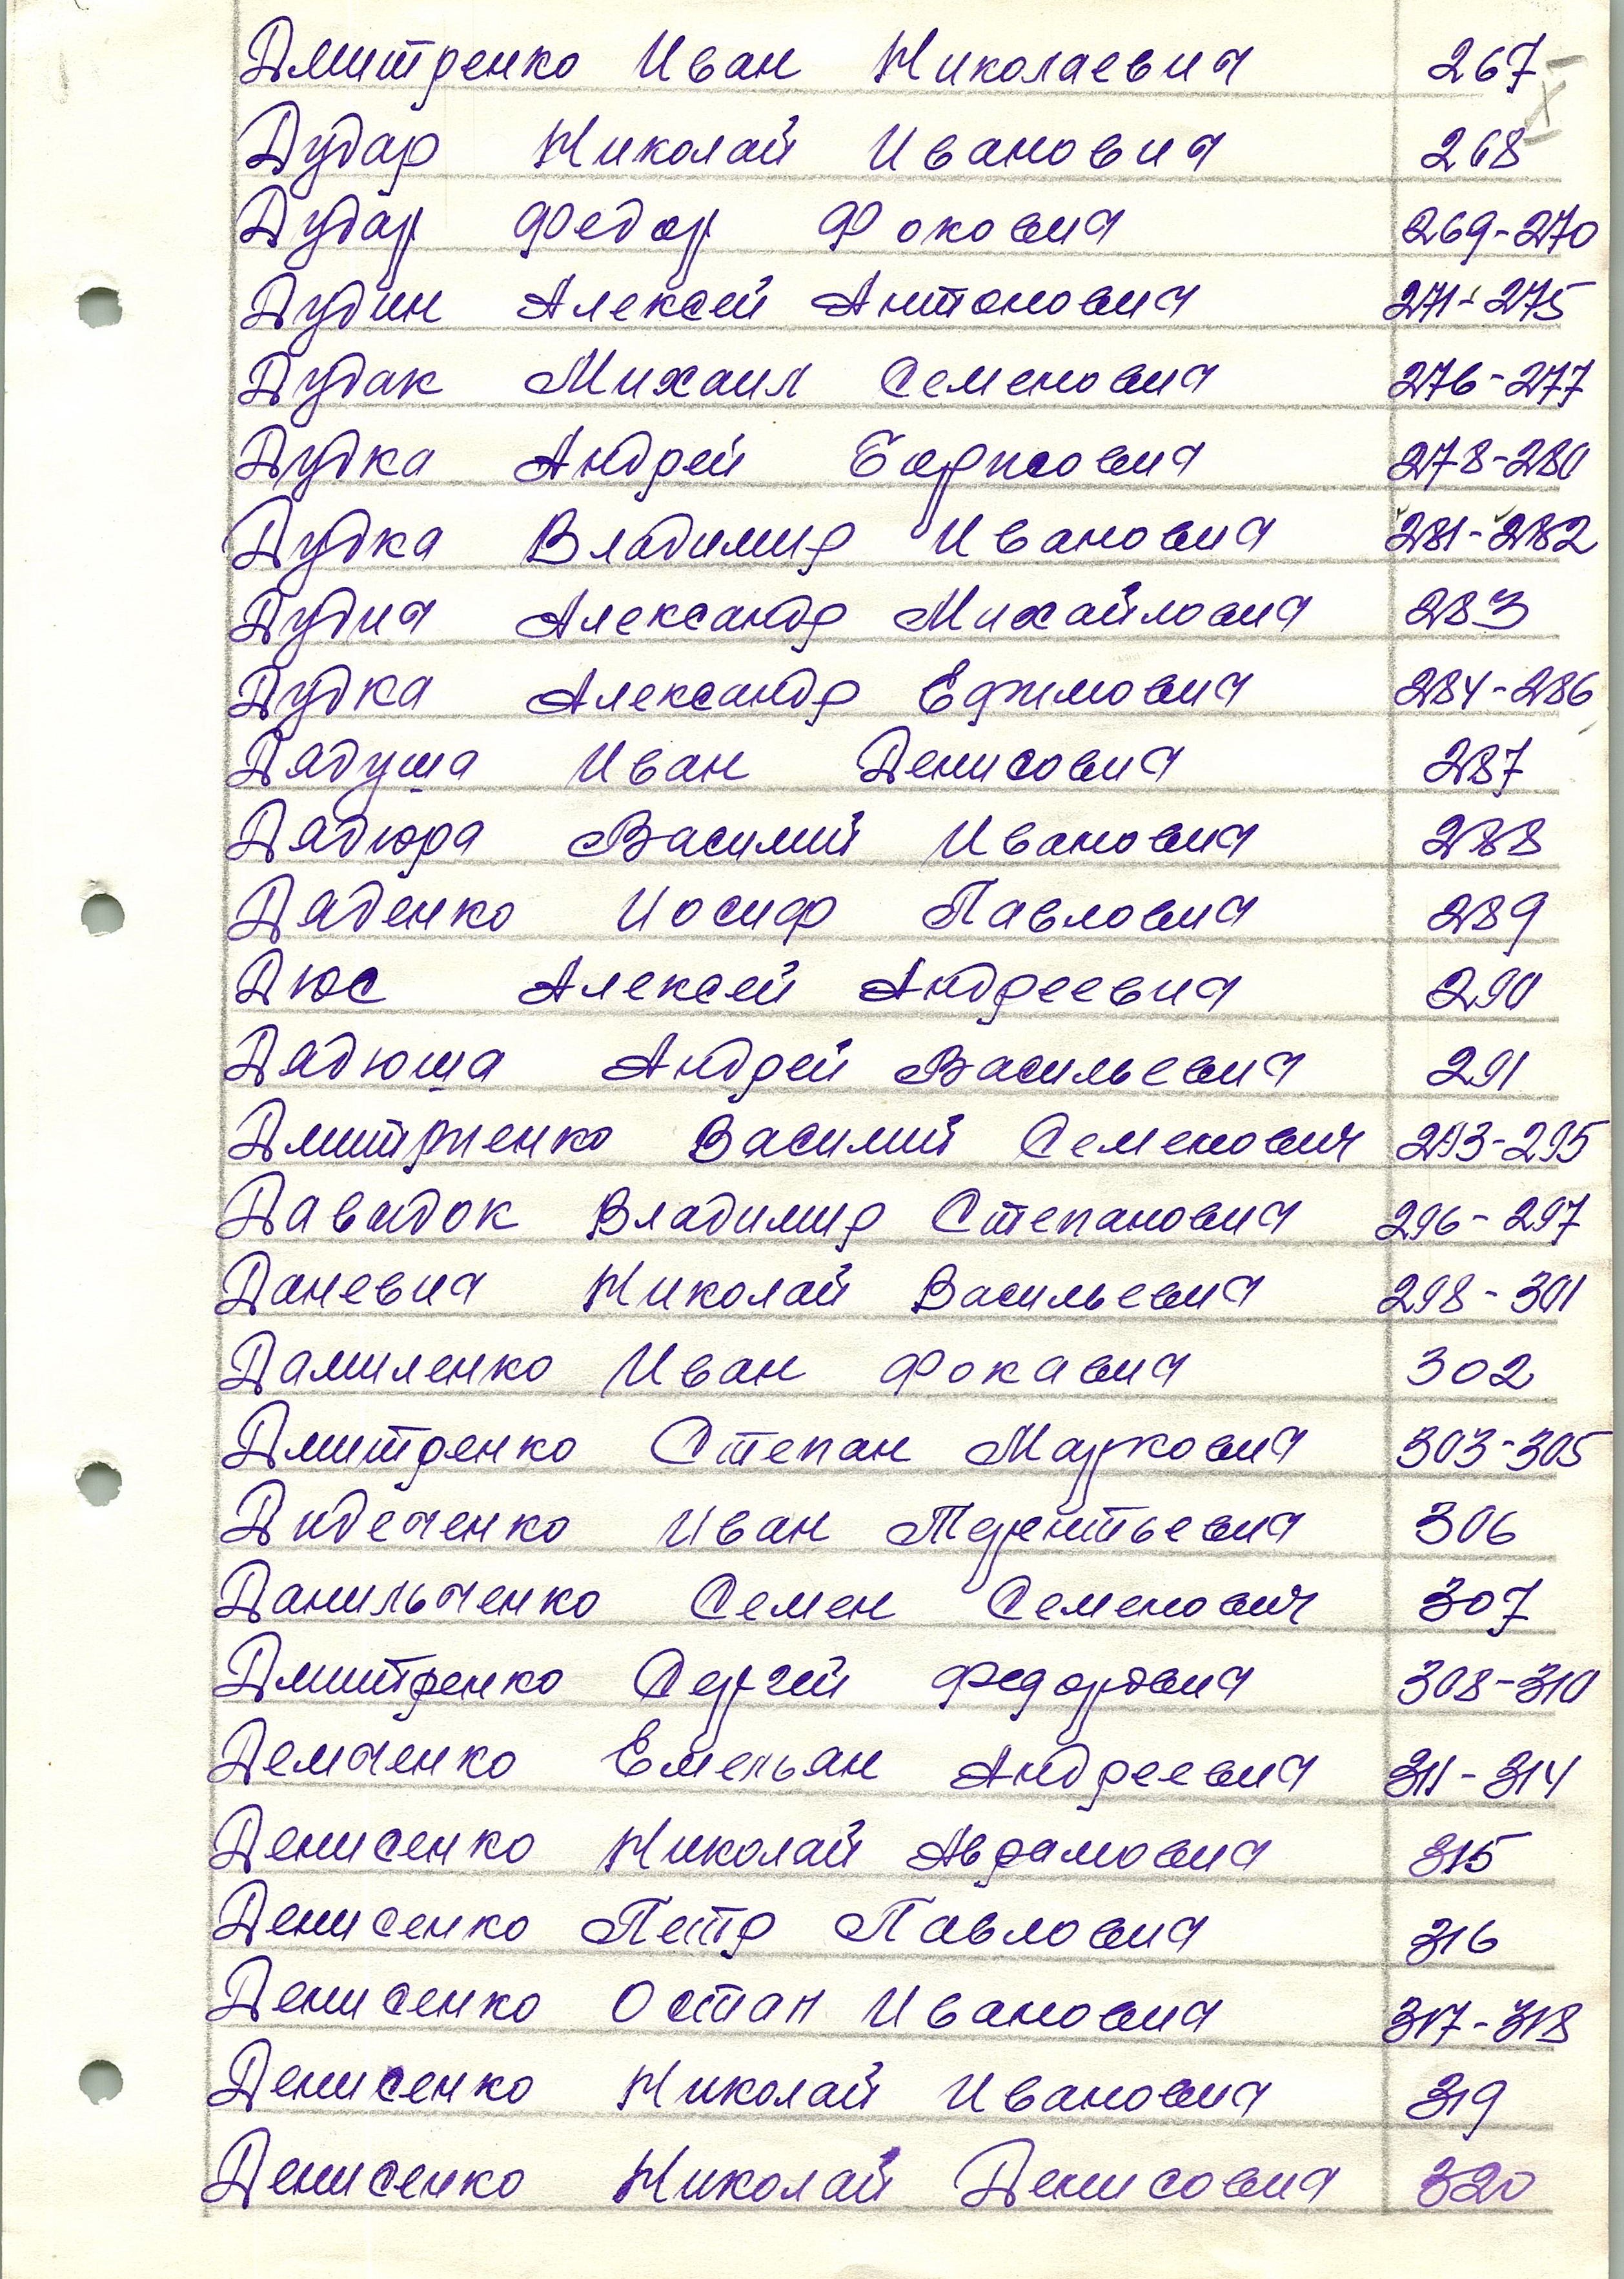 Дмитренко Иван Николаевич 267
Дудар Николай Иванович 268
Дудар Федор Фокович 269-270
Дудин Алексей Антонович 271-275
Дудак Михаил Семенович 276-277
Дудка Андрей Борисович 278-280
Дудка Владимир Иванович 281-282
Дудич Александр Михайлович 283
Дудка Александр Ефимович 284-286
Дядуша Иван Денисович 287
Дядюра Василий Иванович 288
Дяденко Иосиф Павлович 289
Дюс Алексей Андреевич 290
Дядюша Андрей Васильевич 291
Дмитриенко Василий Семенович 293-295
Давидок Владимир Степанович 296-297
Даневич Николай Васильевич 298-301
Даниленко Иван Фокавич 302
Дмитренко Степан Маркович 303-305
Диденченко Иван Терентьевич 306
Данильченко Семен Семенович 307
Дмитренко Сергей Федорович 308-310
Демченко Емельян Андреевич 311-314
Денисенко Николай Аврамович 315
Денисенко Петр Павлович 316
Денисенко Остап Иванович 317-318
Денисенко Николай Иванович 319
Денисенко Николай Денисович 320